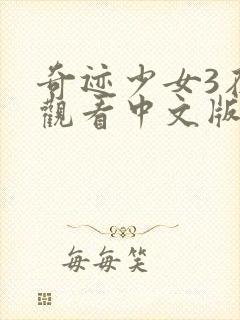 奇迹少女3在
觀看中文版
每每笑